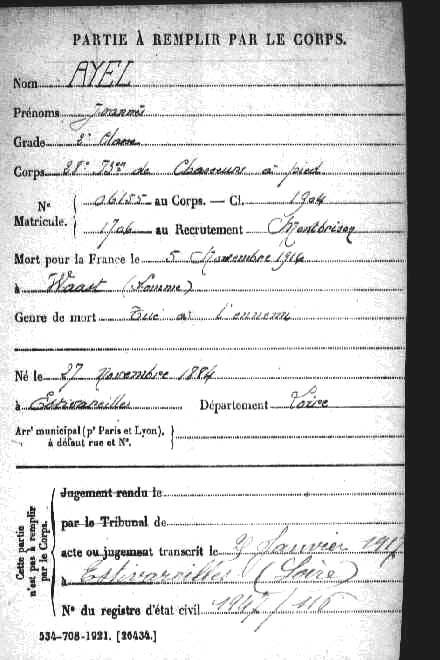 PARTIE À REMPLIR PAR LE CORPS.
Nom AYEL
Prénoms Joannès
Grade 2e Classe
Corps 28e Bon de Chasseurs à pied
N° Matricule. { 06155 au Corps. — Cl. 1904
1706 au Recrutement Montbrison
Mort pour la France le 5 Novembre 1916
à Waast (Somme)
Genre de mort Tué à l'ennemi
Né le 27 Novembre 1884
à Estivareilles Département Loire
Arrt municipal (pr Paris et Lyon),
à défaut rue et N°.
Cette partie n'est pas à remplir par le Corps.
Jugement rendu le
par le Tribunal de
acte ou jugement transcrit le Janvier
à Estivareilles (Loire)
N° du registre d'état civil 1947/116
534-708-1921. [26434.]